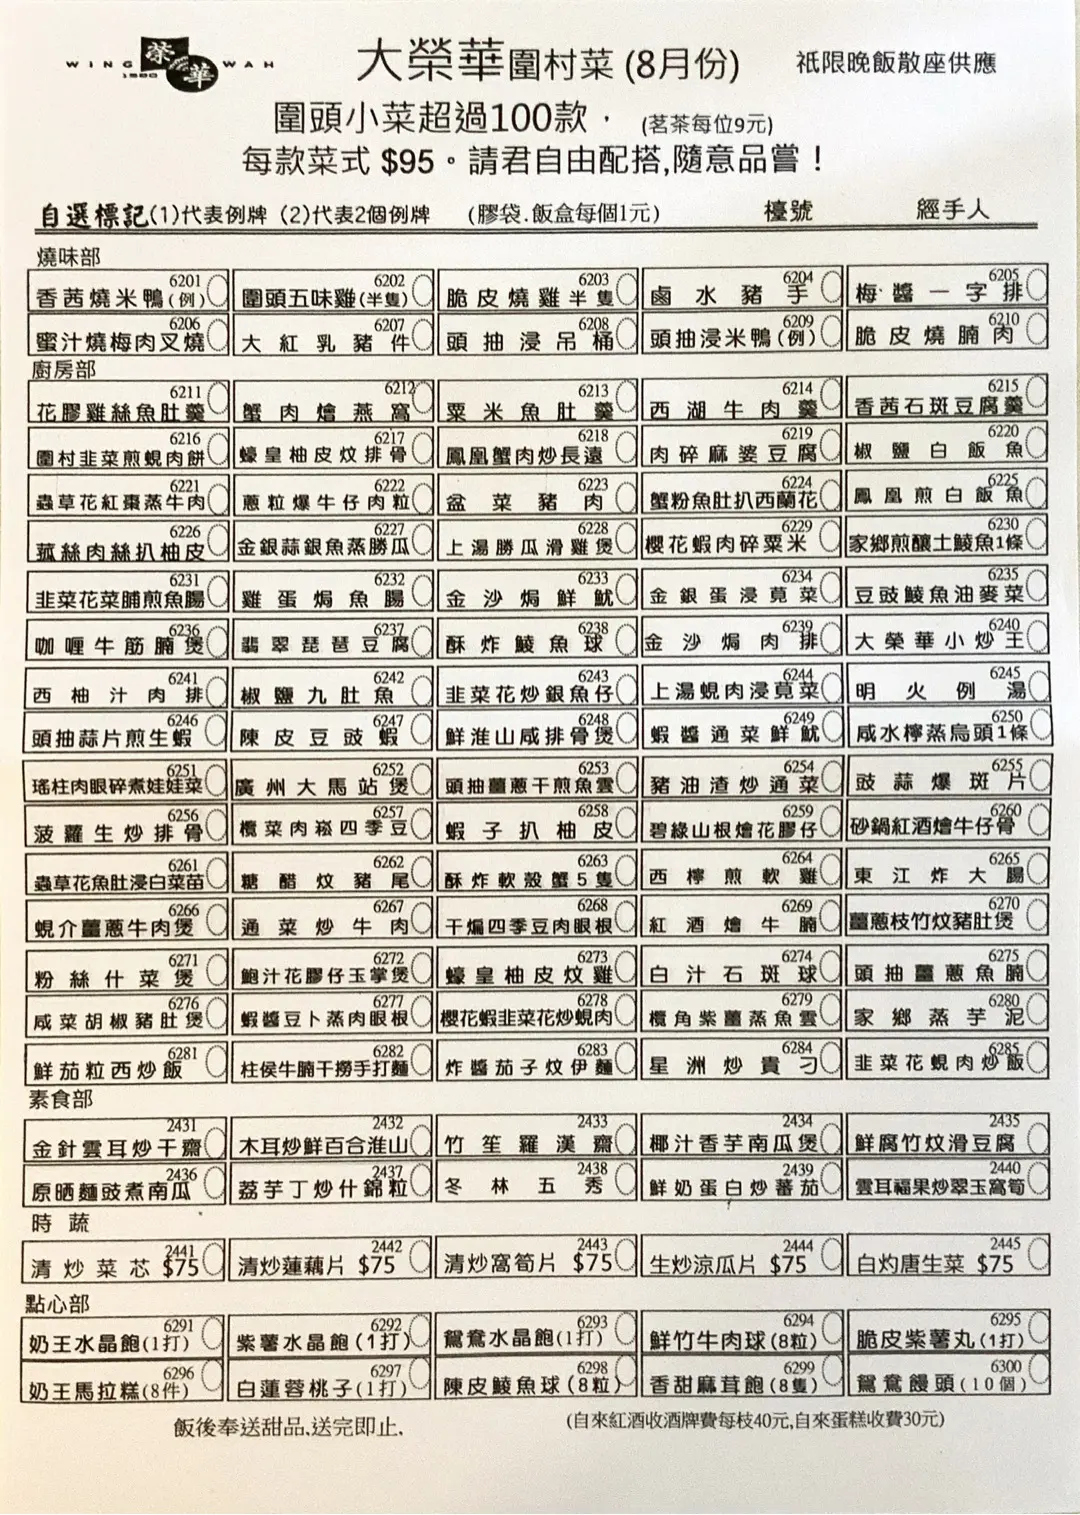 WING 榮華 WAH
1950
大榮華圍村菜 (8月份)
祇限晚飯散座供應
圍頭小菜超過100款， (茗茶每位9元)
每款菜式 $95。請君自由配搭,隨意品嘗！
自選標記(1)代表例牌 (2)代表2個例牌 (膠袋.飯盒每個1元) 檯號 經手人
燒味部
6201 香茜燒米鴨(例) 6202 圍頭五味雞(半隻) 6203 脆皮燒雞半隻 6204 鹵水豬手 6205 梅醬一字排
6206 蜜汁燒梅肉叉燒 6207 大紅乳豬件 6208 頭抽浸吊桶 6209 頭抽浸米鴨(例) 6210 脆皮燒腩肉
廚房部
6211 花膠雞絲魚肚羹 6212 蟹肉燴燕窩 6213 粟米魚肚羹 6214 西湖牛肉羹 6215 香茜石斑豆腐羹
6216 圍村韭菜煎蜆肉餅 6217 蠔皇柚皮炆排骨 6218 鳳凰蟹肉炒長遠 6219 肉碎麻婆豆腐 6220 椒鹽白飯魚
6221 蟲草花紅棗蒸牛肉 6222 蔥粒爆牛仔肉粒 6223 盆菜豬肉 6224 蟹粉魚肚扒西蘭花 6225 鳳凰煎白飯魚
6226 菰絲肉絲扒柚皮 6227 金銀蒜銀魚蒸勝瓜 6228 上湯勝瓜滑雞煲 6229 櫻花蝦肉碎粟米 6230 家鄉煎釀土鯪魚1條
6231 韭菜花菜脯煎魚腸 6232 雞蛋焗魚腸 6233 金沙焗鮮魷 6234 金銀蛋浸莧菜 6235 豆豉鯪魚油麥菜
6236 咖喱牛筋腩煲 6237 翡翠琵琶豆腐 6238 酥炸鯪魚球 6239 金沙焗肉排 6240 大榮華小炒王
6241 西柚汁肉排 6242 椒鹽九肚魚 6243 韭菜花炒銀魚仔 6244 上湯蜆肉浸莧菜 6245 明火例湯
6246 頭抽蒜片煎生蝦 6247 陳皮豆豉蝦 6248 鮮淮山咸排骨煲 6249 蝦醬通菜鮮魷 6250 咸水檸蒸烏頭1條
6251 瑤柱肉眼碎煮娃娃菜 6252 廣州大馬站煲 6253 頭抽薑蔥干煎魚雲 6254 豬油渣炒通菜 6255 豉蒜爆斑片
6256 菠蘿生炒排骨 6257 欖菜肉崧四季豆 6258 蝦子扒柚皮 6259 碧綠山根燴花膠仔 6260 砂鍋紅酒燴牛仔骨
6261 蟲草花魚肚浸白菜苗 6262 糖醋炆豬尾 6263 酥炸軟殼蟹5隻 6264 西檸煎軟雞 6265 東江炸大腸
6266 蜆介薑蔥牛肉煲 6267 通菜炒牛肉 6268 干煸四季豆肉眼根 6269 紅酒燴牛腩 6270 薑蔥枝竹炆豬肚煲
6271 粉絲什菜煲 6272 鮑汁花膠仔玉掌煲 6273 蠔皇柚皮炆雞 6274 白汁石斑球 6275 頭抽薑蔥魚腩
6276 咸菜胡椒豬肚煲 6277 蝦醬豆卜蒸肉眼根 6278 櫻花蝦韭菜花炒蜆肉 6279 欖角紫薑蒸魚雲 6280 家鄉蒸芋泥
6281 鮮茄粒西炒飯 6282 柱侯牛腩干撈手打麵 6283 炸醬茄子炆伊麵 6284 星洲炒貴刁 6285 韭菜花蜆肉炒飯
素食部
2431 金針雲耳炒干齋 2432 木耳炒鮮百合淮山 2433 竹笙羅漢齋 2434 椰汁香芋南瓜煲 2435 鮮腐竹炆滑豆腐
2436 原晒麵豉煮南瓜 2437 荔芋丁炒什錦粒 2438 冬林五秀 2439 鮮奶蛋白炒蕃茄 2440 雲耳福果炒翠玉窩筍
時蔬
2441 清炒菜芯 $75 2442 清炒蓮藕片 $75 2443 清炒窩筍片 $75 2444 生炒涼瓜片 $75 2445 白灼唐生菜 $75
點心部
6291 奶王水晶飽(1打) 6292 紫薯水晶飽(1打) 6293 鴛鴦水晶飽(1打) 6294 鮮竹牛肉球(8粒) 6295 脆皮紫薯丸(1打)
6296 奶王馬拉糕(8件) 6297 白蓮蓉桃子(1打) 6298 陳皮鯪魚球(8粒) 6299 香甜麻茸飽(8隻) 6300 鴛鴦饅頭(10個)
飯後奉送甜品,送完即止. (自來紅酒收酒牌費每枝40元,自來蛋糕收費30元)